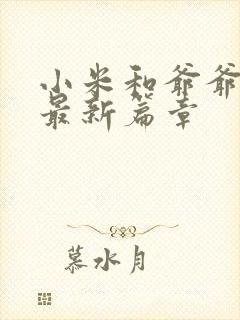 小米和爷爷
最新篇章
慕水月